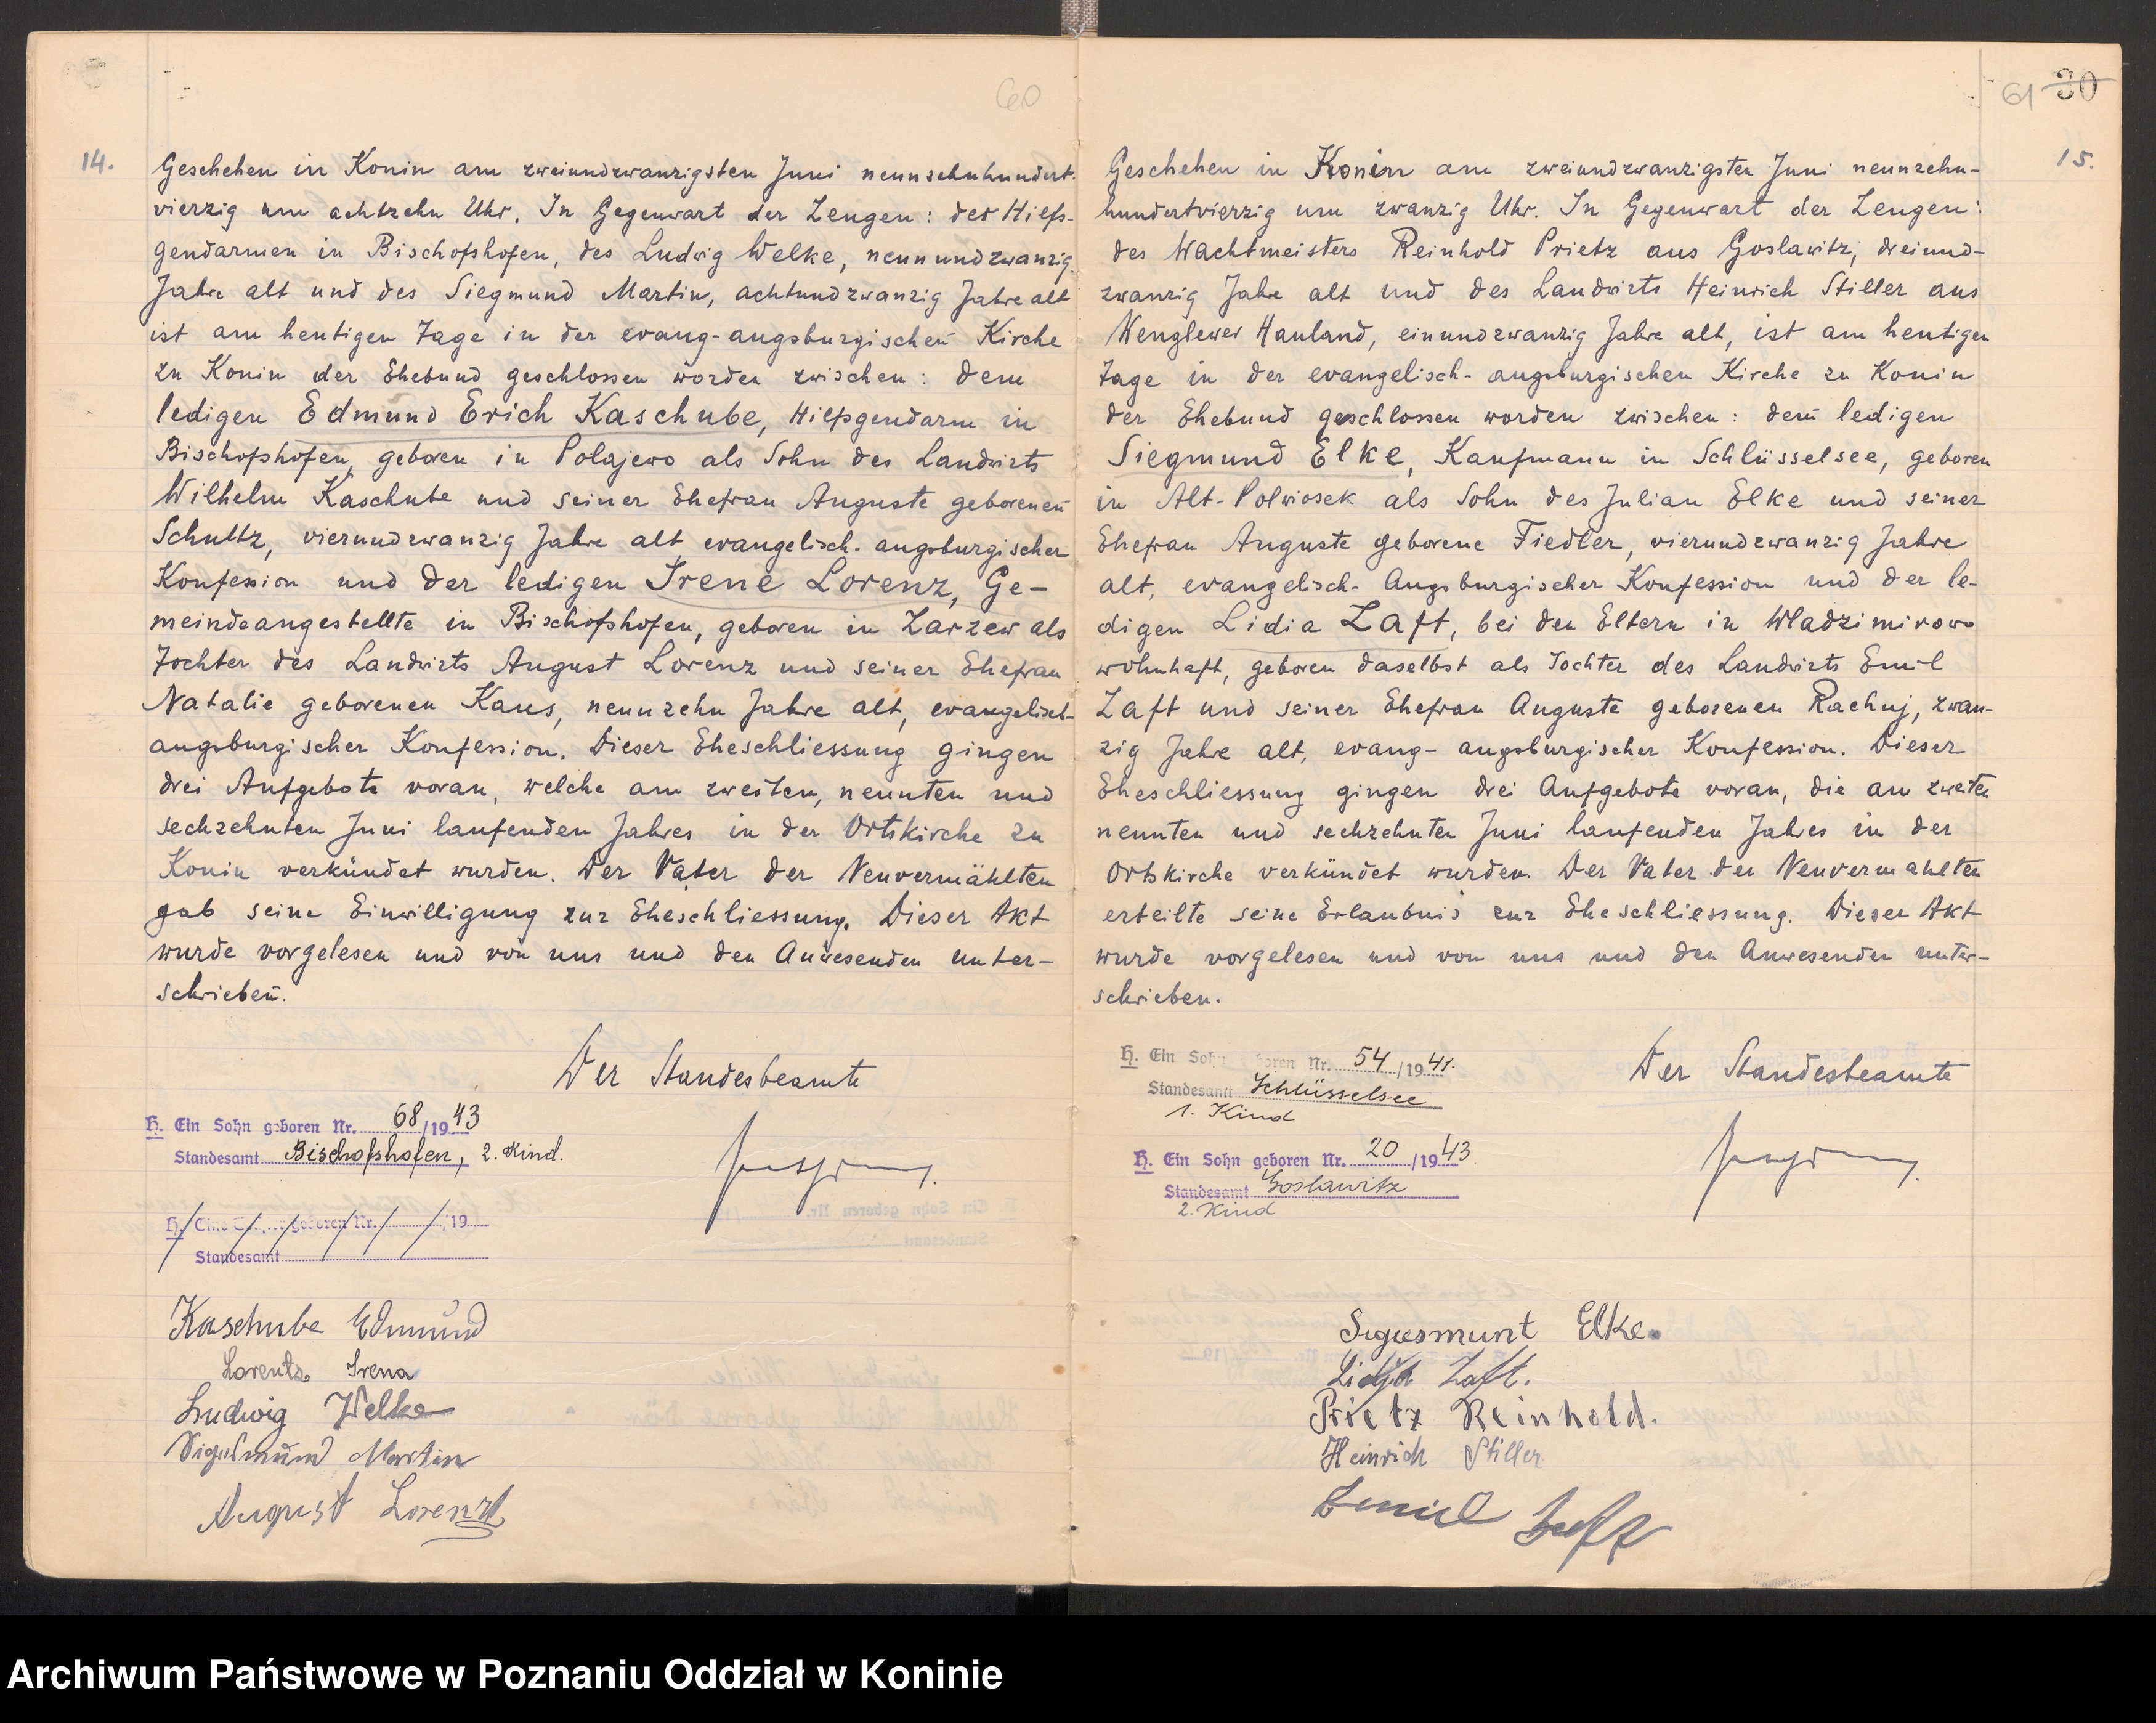 60
14.
Geschehen in Konin am zweiundzwanzigsten Juni neunzehnhundert-
vierzig um achtzehn Uhr. In Gegenwart der Zeugen: des Hilfs-
gendarmen in Bischofshofen, des Ludwig Welke, neunundzwanzig
Jahre alt und des Siegmund Martin, achtundzwanzig Jahre alt
ist am heutigen Tage in der evang-augsburgischen Kirche
zu Konin der Ehebund geschlossen worden zwischen: dem
ledigen Edmund Erich Kaschube, Hilfsgendarm in
Bischofshofen, geboren in Polajewo als Sohn des Landwirts
Wilhelm Kaschube und seiner Ehefrau Auguste geborenen
Schultz, vierundzwanzig Jahre alt evangelisch-augsburgischer
Konfession und der ledigen Irene Lorenz, Ge-
meindeangestellte in Bischofshofen, geboren in Zarzew als
Tochter des Landwirts August Lorenz und seiner Ehefrau
Natalie geborenen Kaus, neunzehn Jahre alt, evangelisch-
augsburgischer Konfession. Dieser Eheschliessung gingen
drei Aufgebote voran, welche am zweiten, neunten und
sechzehnten Juni laufenden Jahres in der Ortskirche zu
Konin verkündet wurden. Der Vater der Neuvermählten
gab seine Einwilligung zur Eheschliessung. Dieser Akt
wurde vorgelesen und von uns und den Anwesenden unter-
schrieben.
Der Standesbeamte
H. Ein Sohn geboren Nr. 68/1943
Standesamt Bischofshofen, 2. Kind.
H. Eine geboren Nr. /19
Standesamt
Kaschube Edmund
Lorentz Irena
Ludwig Welke
Sigismund Martin
August Lorenz
61 30
15.
Geschehen in Konin am zweiundzwanzigsten Juni neunzehn-
hundertvierzig um zwanzig Uhr. In Gegenwart der Zeugen:
des Wachtmeisters Reinhold Prietz aus Goslawitz, dreiund-
zwanzig Jahre alt und des Landwirts Heinrich Stiller aus
Wenglewer Hauland, einundzwanzig Jahre alt, ist am heutigen
Tage in der evangelisch-augsburgischen Kirche zu Konin
der Ehebund geschlossen worden zwischen: dem ledigen
Siegmund Elke, Kaufmann in Schlüsselsee, geboren
in Alt-Polwiosek als Sohn des Julian Elke und seiner
Ehefrau Auguste geborene Fiedler, vierundzwanzig Jahre
alt, evangelisch-Augsburgischer Konfession und der le-
digen Lidia Zaft, bei den Eltern in Wladzimirowo
wohnhaft, geboren daselbst als Tochter des Landwirts Emil
Zaft und seiner Ehefrau Auguste geborenen Rachuj, zwan-
zig Jahre alt, evang-augsburgischer Konfession. Dieser
Eheschliessung gingen drei Aufgebote voran, die am zweiten
neunten und sechzehnten Juni laufenden Jahres in der
Ortskirche verkündet wurden. Der Vater der Neuvermählten
erteilte seine Erlaubnis zur Eheschliessung. Dieser Akt
wurde vorgelesen und von uns und den Anwesenden unter-
schrieben.
H. Ein Sohn geboren Nr. 54/1941.
Standesamt Schlüsselsee
1. Kind
Der Standesbeamte
H. Ein Sohn geboren Nr. 20/1943
Standesamt Goslawitz
2. Kind
Sigesmunt Elke.
Lidja Zaft.
Prietz Reinhold.
Heinrich Stiller
Emil Zaft
Archiwum Państwowe w Poznaniu Oddział w Koninie